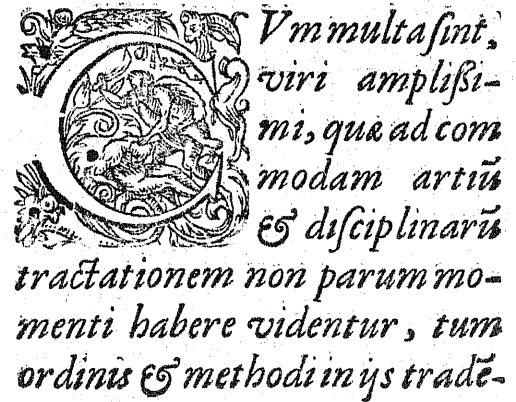 CVm multa ſint,
viri ampliſsi-
mi, quæ ad com
modam artiū
& diſciplinarū
tractationem non parum mo-
menti habere videntur, tum
ordinis & methodi in ijs tradē-